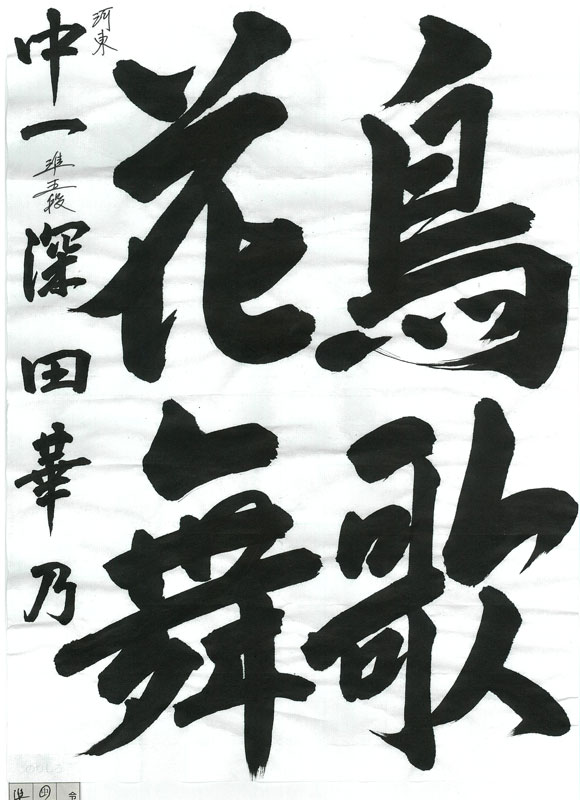 鳥歌
花舞
河東
中一 準五段 深田華乃